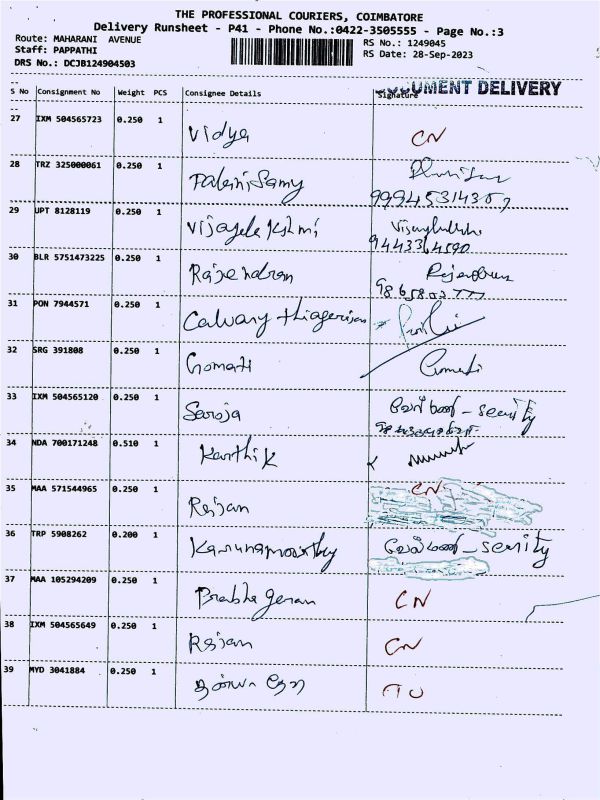 THE PROFESSIONAL COURIERS, COIMBATORE
Delivery Runsheet - P41 - Phone No.:0422-3505555 - Page No.:3
Route: MAHARANI AVENUE
RS No.: 1249045
Staff: PAPPATHI
RS Date: 28-Sep-2023
DRS No.: DCJB124904503
DOCUMENT DELIVERY
S No Consignment No Weight PCS Consignee Details Signature
27 IXM 504565723 0.250 1 Vidya CN
28 TRZ 325000061 0.250 1 Palanisamy
29 UPT 8128119 0.250 1 Vijayalakshmi
9443364590
30 BLR 5751473225 0.250 1 Rajendran Rajendran
31 PON 7944571 0.250 1 Calvary thiagarijan
32 SRG 391808 0.250 1 Gomati Gomati
33 IXM 504565120 0.250 1 Saroja
34 NDA 700171248 0.510 1 Karthik
35 MAA 571544965 0.250 1 Rajan CN
36 TRP 5908262 0.200 1 Karunamoorthy
37 MAA 105294209 0.250 1 Prabhageran CN
38 IXM 504565649 0.250 1 Rajan CN
39 MYD 3041884 0.250 1